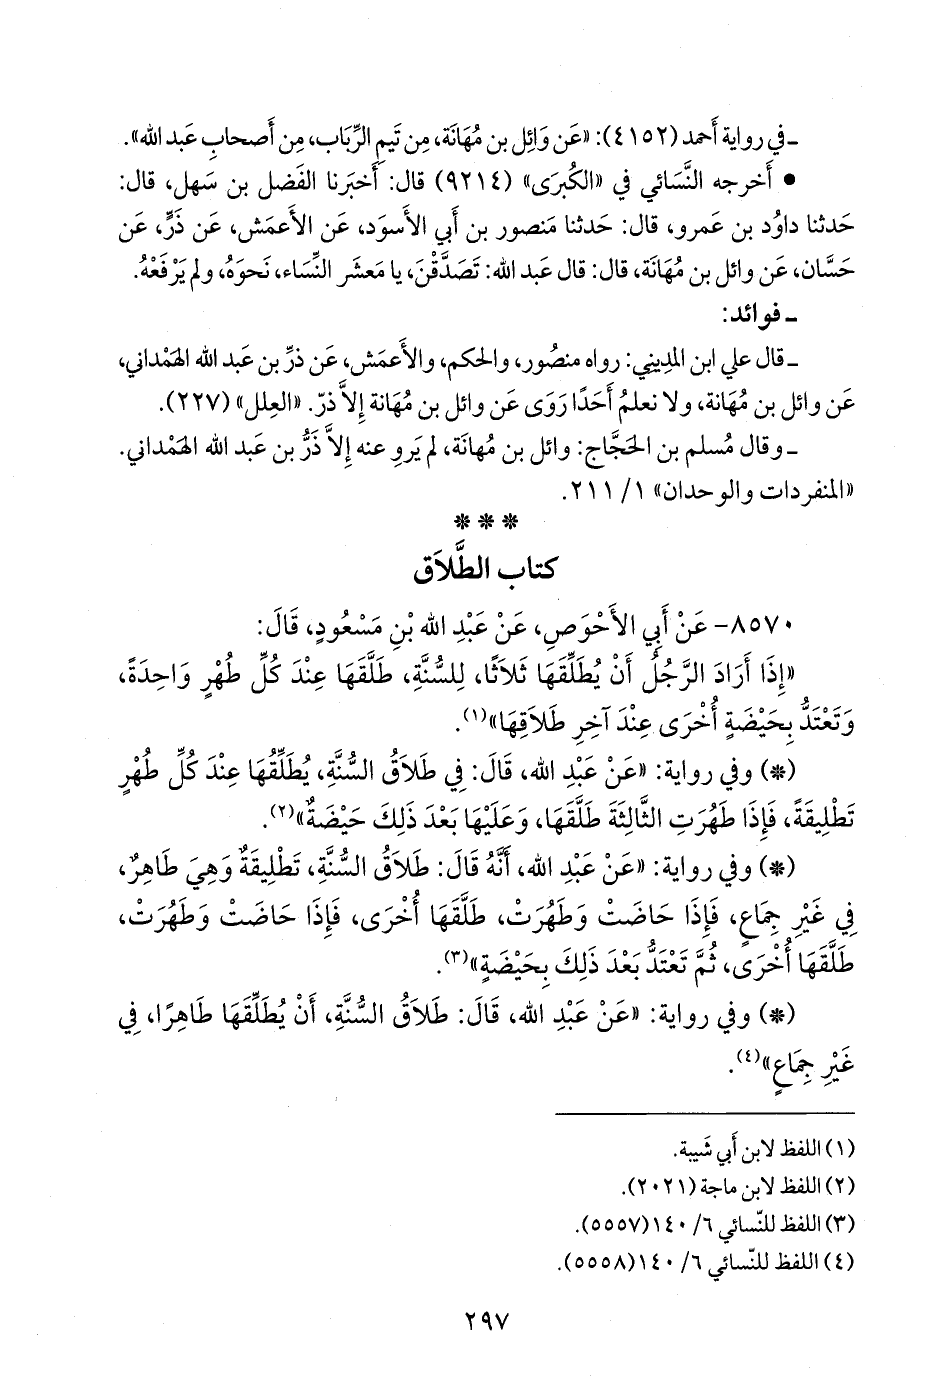 ـ في رواية أَحمد (٤١٥٢): «عَن وَائِل بن مُهَانَة، مِن تَيمِ الرِّبَاب، مِن أَصحابِ عَبد الله».
• أَخرجه النَّسَائي في «الكُبرَى» (٩٢١٤) قال: أَخبَرنا الفَضل بن سَهل، قال:
حَدثنا داوُد بن عَمرو، قال: حَدثنا مَنصور بن أَبي الأَسوَد، عَن الأَعمَش، عَن ذَرٍّ، عَن
حَسَّان، عَن وائل بن مُهَانَة، قال: قال عَبد الله: تَصَدَّقْنَ، يا مَعشَر النِّساء، نَحوَهُ، ولم يَرْفَعْهُ.
ـ فوائد:
ـ قال علي ابن المدِيني: رواه منصُور، والحكم، والأَعمَش، عَن ذرِّ بن عَبد الله الهَمْداني،
عَن وائل بن مُهَانة، ولا نعلمُ أَحَدًا رَوَى عَن وائل بن مُهَانة إِلاَّ ذرّ. «العِلل» (٢٢٧).
ـ وقال مُسلم بن الحَجَّاج: وائل بن مُهانَة، لم يَروِ عنه إِلاَّ ذَرُّ بن عَبد الله الهَمْداني.
«المنفردات والوحدان» ١/ ٢١١.
* * *
كتاب الطَّلاَق
٨٥٧٠- عَنْ أَبِي الأَحْوَصِ، عَنْ عَبْدِ الله بْنِ مَسْعُودٍ، قَالَ:
«إِذَا أَرَادَ الرَّجُلُ أَنْ يُطَلِّقَهَا ثَلاَثًا، لِلسُّنَّةِ، طَلَّقَهَا عِنْدَ كُلِّ طُهْرٍ وَاحِدَةً،
وَتَعْتَدُّ بِحَيْضَةٍ أُخْرَى عِنْدَ آخِرِ طَلاَقِهَا»(١).
(*) وفي رواية: «عَنْ عَبْدِ الله، قَالَ: فِي طَلاَقُ السُّنَّةِ، يُطَلِّقُهَا عِنْدَ كُلِّ طُهْرٍ
تَطْلِيقَةً، فَإِذَا طَهُرَتِ الثَّالِثَةَ طَلَّقَهَا، وَعَلَيْهَا بَعْدَ ذَلِكَ حَيْضَةٌ»(٢).
(*) وفي رواية: «عَنْ عَبْدِ الله، أَنَّهُ قَالَ: طَلاَقُ السُّنَّةِ، تَطْلِيقَةٌ وَهِيَ طَاهِرٌ،
فِي غَيْرِ جِمَاعٍ، فَإِذَا حَاضَتْ وَطَهُرَتْ، طَلَّقَهَا أُخْرَى، فَإِذَا حَاضَتْ وَطَهُرَتْ،
طَلَّقَهَا أُخْرَى، ثُمَّ تَعْتَدُّ بَعْدَ ذَلِكَ بِحَيْضَةٍ»(٣).
(*) وفي رواية: «عَنْ عَبْدِ الله، قَالَ: طَلاَقُ السُّنَّةِ، أَنْ يُطَلِّقَهَا طَاهِرًا، فِي
غَيْرِ جِمَاعٍ»(٤).
(١) اللفظ لابن أَبي شَيبة.
(٢) اللفظ لابن ماجة (٢٠٢١).
(٣) اللفظ للنَّسائي ٦/ ١٤٠(٥٥٥٧).
(٤) اللفظ للنَّسائي ٦/ ١٤٠(٥٥٥٨).
٢٩٧